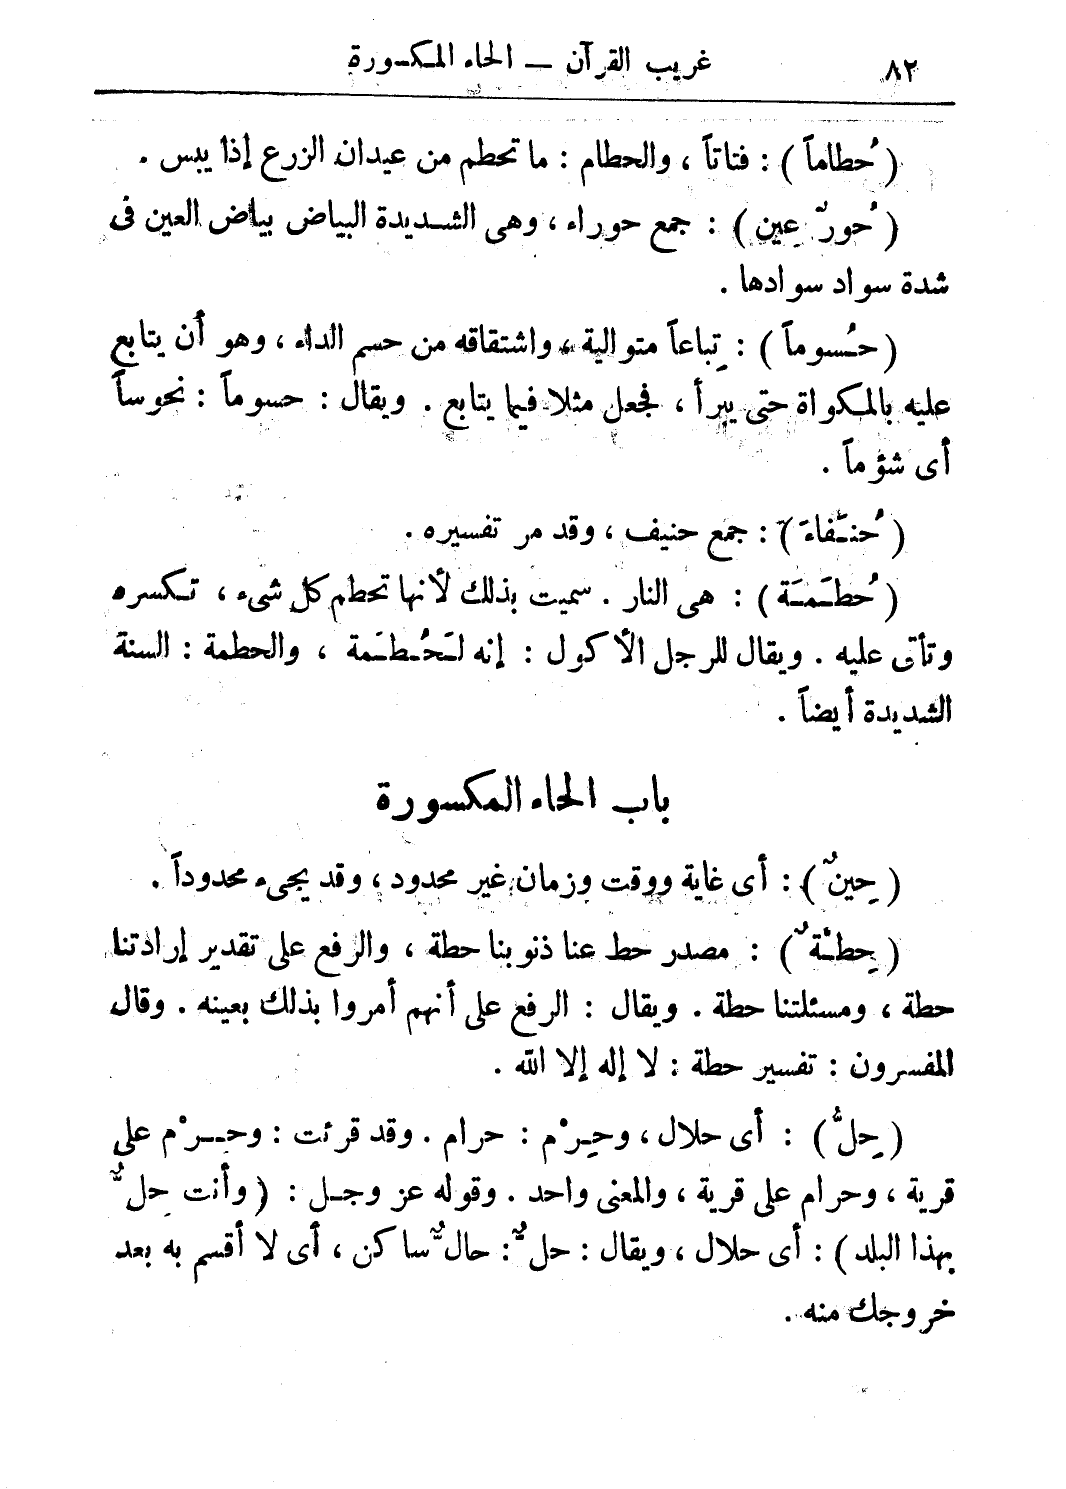 ٨٢ غريب القرآن — الحاء المكسورة
( حُطاماً ) : فتاتاً ، والحطام : ما تحطم من عيدان الزرع إذا يبس .
( حُورٌ عِين ) : جمع حوراء ، وهى الشديدة البياض بياض العين فى
شدة سواد سوادها .
( حُسوماً ) : تِباعاً متوالية ، واشتقاقه من حسم الداء ، وهو أن يتابع
عليه بالمكواة حتى يبرأ ، فجعل مثلا فيما يتابع . ويقال : حسوماً : نحوساً
أى شؤماً .
( حُنَفاءَ ) : جمع حنيف ، وقد مر تفسيره .
( حُطَمَة ) : هى النار . سميت بذلك لأنها تحطم كل شىء ، تكسره
وتأتى عليه . ويقال للرجل الأكول : إنه لَحُطَمة ، والحطمة : السنة
الشديدة أيضاً .
باب الحاء المكسورة
( حِينٌ ) : أى غاية ووقت وزمان غير محدود ، وقد يجىء محدوداً .
( حِطَّةٌ ) : مصدر حط عنا ذنوبنا حطة ، والرفع على تقدير إرادتنا
حطة ، ومسئلتنا حطة . ويقال : الرفع على أنهم أمروا بذلك بعينه . وقال
المفسرون : تفسير حطة : لا إله إلا الله .
( حِلٌّ ) : أى حلال ، وحِرْم : حرام . وقد قرئت : وحِرْم على
قرية ، وحرام على قرية ، والمعنى واحد . وقوله عز وجل : ( وأنت حِلٌّ
بهذا البلد ) : أى حلال ، ويقال : حلٌّ : حالٌّ ساكن ، أى لا أقسم به بعد
خروجك منه .